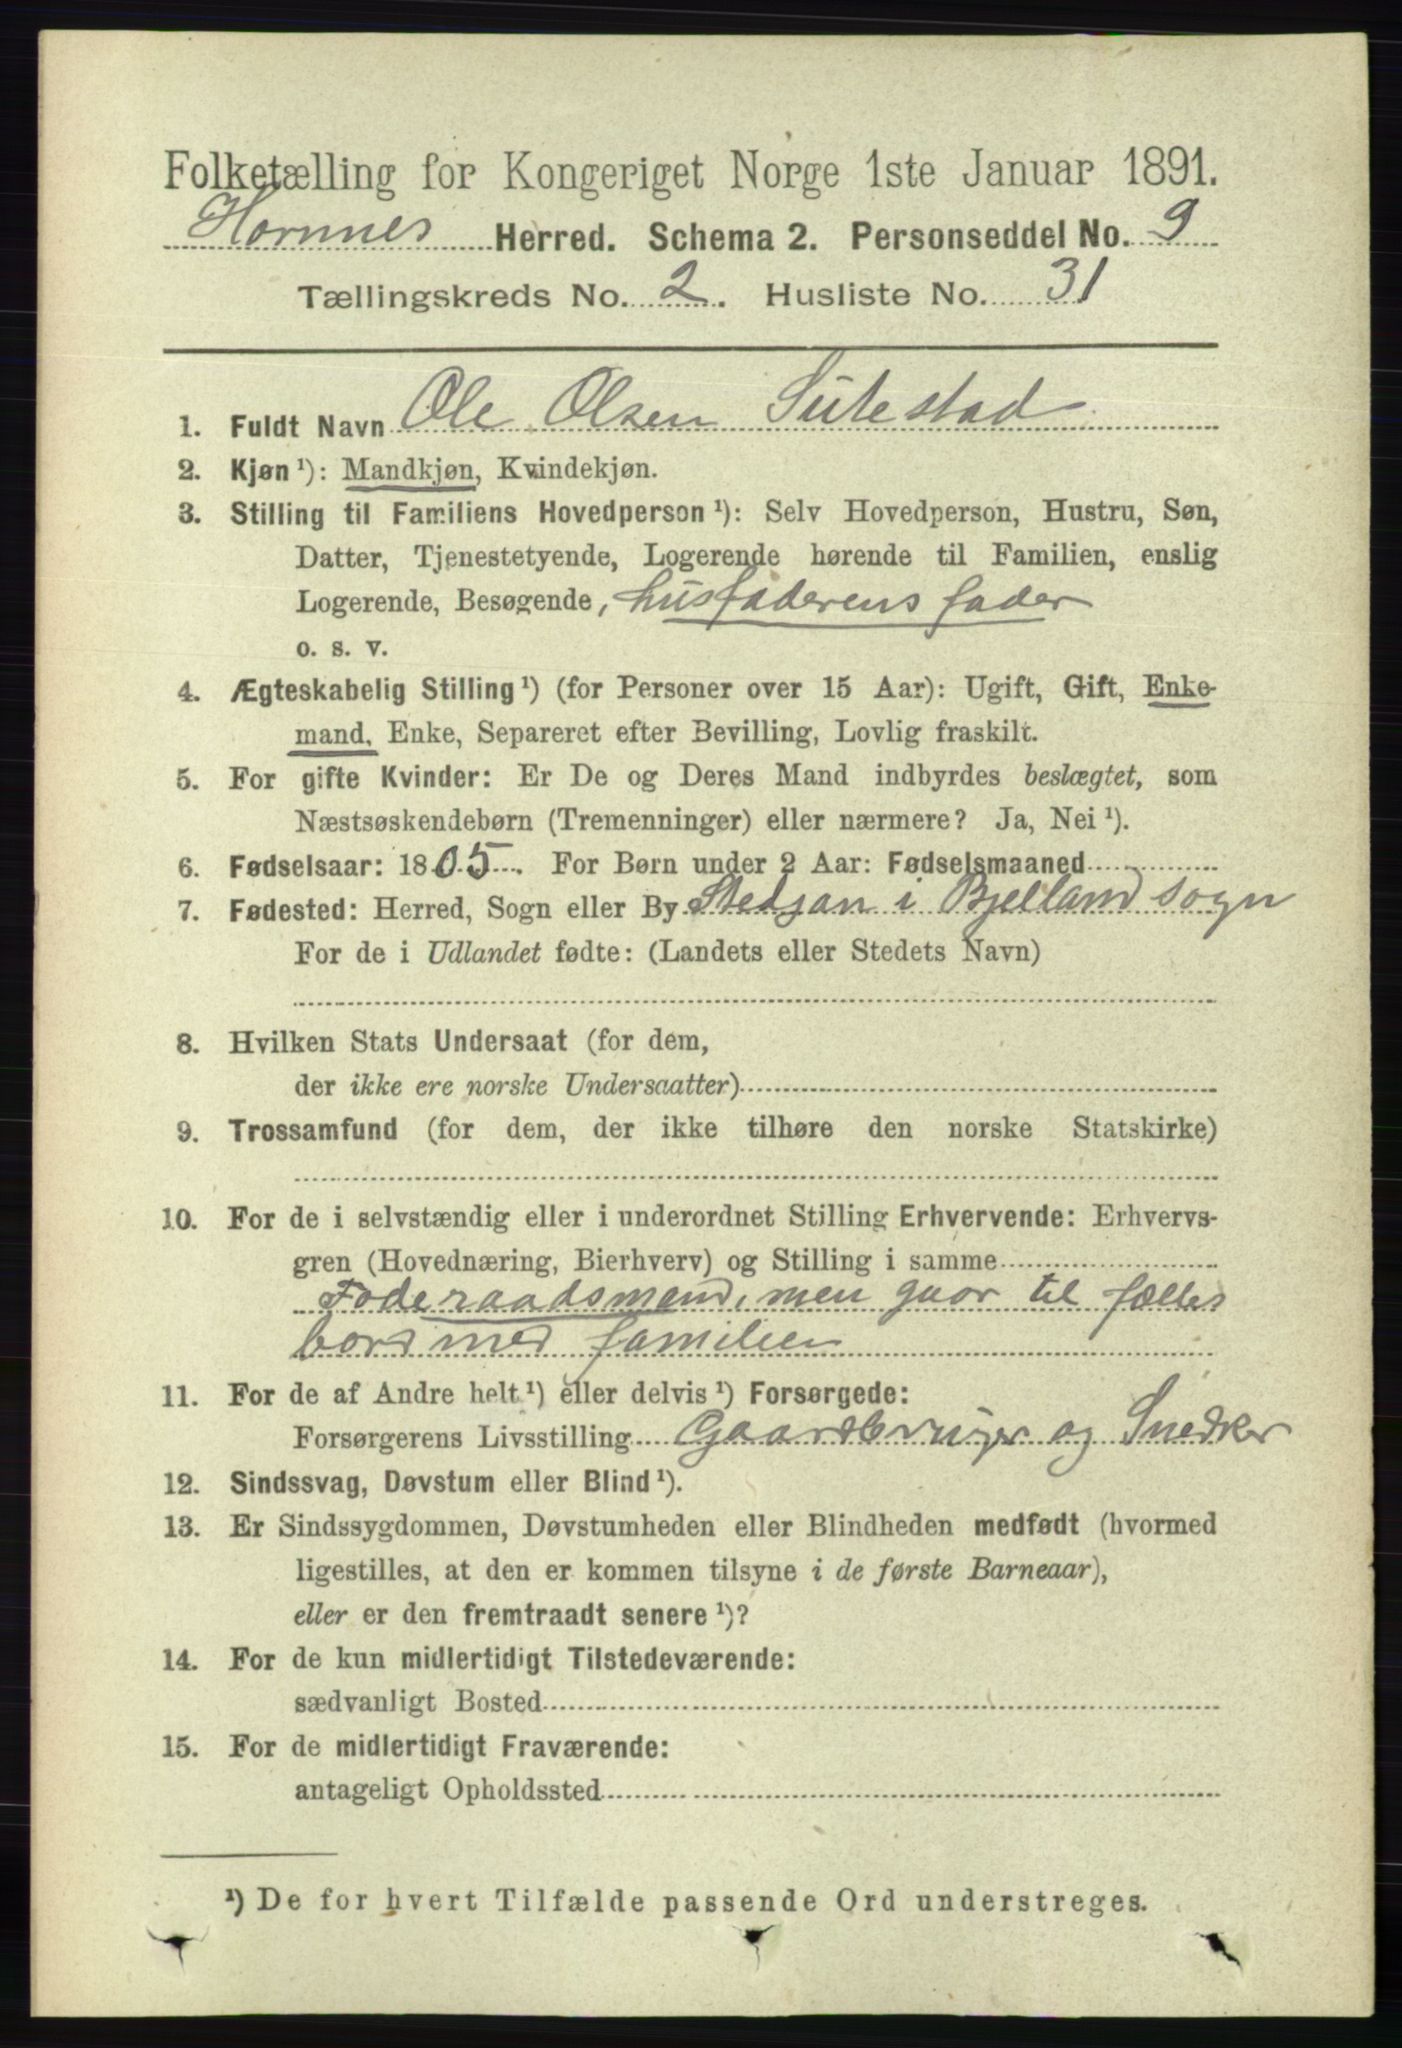 Folketælling for Kongeriget Norge 1ste Januar 1891.
Hornnes Herred. Schema 2. Personseddel No. 9
Tællingskreds No. 2. Husliste No. 31
1. Fuldt Navn Ole Olsen Sutestad
2. Kjøn ¹): Mandkjøn, Kvindekjøn.
3. Stilling til Familiens Hovedperson ¹): Selv Hovedperson, Hustru, Søn,
Datter, Tjenestetyende, Logerende hørende til Familien, enslig
Logerende, Besøgende, husfaderens fader
o. s. v.
4. Ægteskabelig Stilling ¹) (for Personer over 15 Aar): Ugift, Gift, Enke-
mand, Enke, Separeret efter Bevilling, Lovlig fraskilt.
5. For gifte Kvinder: Er De og Deres Mand indbyrdes beslægtet, som
Næstsøskendebørn (Tremenninger) eller nærmere? Ja, Nei ¹).
6. Fødselsaar: 1805. For Børn under 2 Aar: Fødselsmaaned
7. Fødested: Herred, Sogn eller By Stedjan i Bjelland sogn
For de i Udlandet fødte: (Landets eller Stedets Navn)
8. Hvilken Stats Undersaat (for dem,
der ikke ere norske Undersaatter)
9. Trossamfund (for dem, der ikke tilhøre den norske Statskirke)
10. For de i selvstændig eller i underordnet Stilling Erhvervende: Erhvervs-
gren (Hovednæring, Bierhverv) og Stilling i samme
Føderaadsmand, men gaar til fælles
bord med familien
11. For de af Andre helt ¹) eller delvis ¹) Forsørgede:
Forsørgerens Livsstilling Gaardbruger og Snedker
12. Sindssvag, Døvstum eller Blind ¹).
13. Er Sindssygdommen, Døvstumheden eller Blindheden medfødt (hvormed
ligestilles, at den er kommen tilsyne i de første Barneaar),
eller er den fremtraadt senere ¹)?
14. For de kun midlertidigt Tilstedeværende:
sædvanligt Bosted
15. For de midlertidigt Fraværende:
antageligt Opholdssted
¹) De for hvert Tilfælde passende Ord understreges.